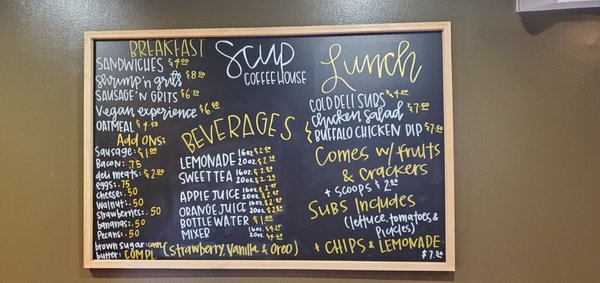 BREAKFAST
SANDWICHES $4.00
Shrimp 'n grits $8.50
SAUSAGE 'N GRITS $6.50
Vegan experience $6.50
OATMEAL $4.50
Add ons:
Sausage: $1.00
Bacon: .75
deli meats: $2.00
eggs: .75
cheese: .50
walnut: .50
strawberries: .50
bananas: .50
Pecans: .50
brown sugar: COMPL.
butter: COMPL.
SCUP
COFFEEHOUSE
BEVERAGES
LEMONADE 16oz
20oz
SWEET TEA 16oz
20oz
APPLE JUICE 16oz
20oz
ORANGE JUICE 16oz
20oz
BOTTLE WATER $1.00
MIXER 16oz
20oz
(strawberry, Vanilla & Oreo)
Lunch
COLD DELI SUBS
chicken Salad $7.50
BUFFALO CHICKEN DIP $7.50
Comes w/ fruits
& crackers
+ scoops $2.00
SUBS INCLUDES
(lettuce, tomatoes &
pickles)
+ CHIPS & LEMONADE
$7.50